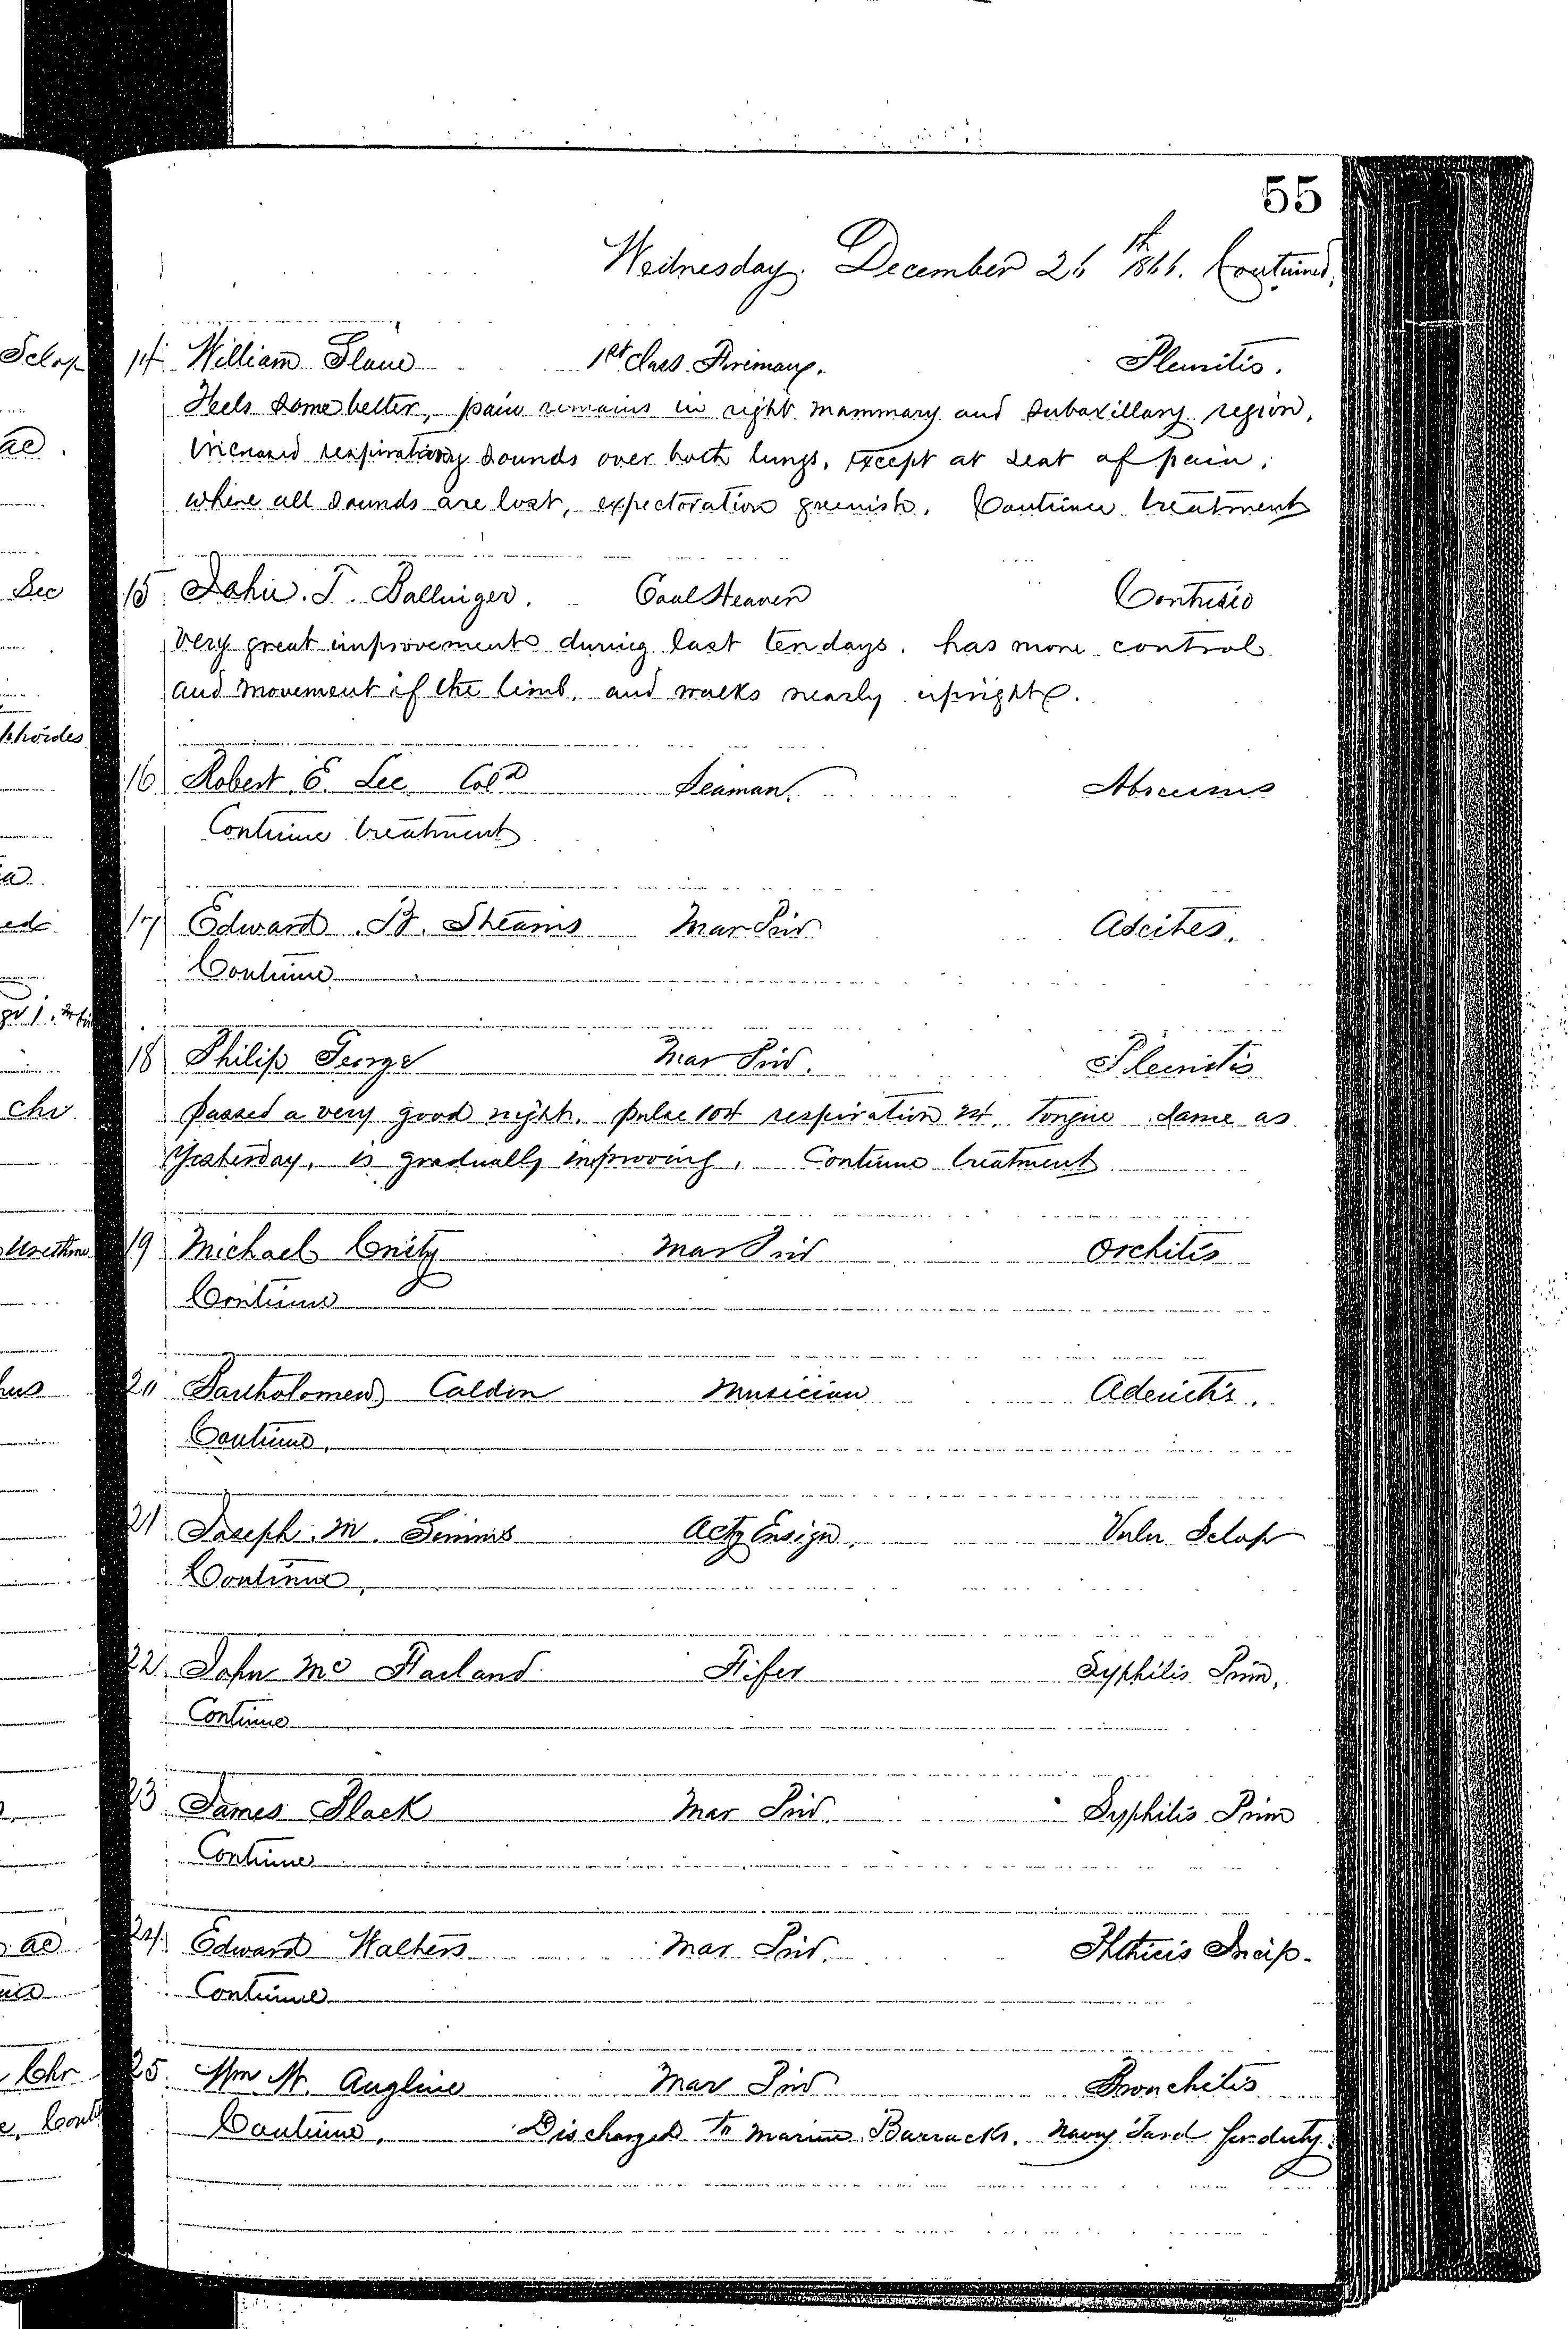 55
Wednesday. December 26th 1866. Continued.
14 William 1st Class Fireman. Pleuritis.
Feels some better, pain remains in right mammary and subaxillary region,
increased respiratory sounds over both lungs, except at seat of pain,
where all sounds are lost, expectoration greenish. Continue treatment
15 John. T. Ballinger. Coal Heaver Contusio
Very great improvement during last ten days. has more control
and movement of the limb, and walks nearly upright.
16 Robert. E. Lee Cold Seaman. Abscessus
Continue treatment
17 Edward. B. Stearns Mar Priv. Ascites.
Continue
18 Philip George Mar Priv. Pleuritis
passed a very good night. pulse 104 respiration 24. Tongue same as
yesterday, is gradually improving. Continue treatment
19 Michael Mar Priv Orchitis
Continue
20 Bartholomew Caldin Musician Adenitis.
Continue.
21 Joseph. M. Simms Actg Ensign. Vuln Sclop
Continue.
22 John Mc Farland Fifer Syphilis Prim.
Continue
23 James Black Mar Priv. Syphilis Prim
Continue
24 Edward Walters Mar Priv. Phthisis Incip.
Continue
25 Wm H. Angline Mar Priv Bronchitis
Continue. Discharged to Marine Barracks. Navy Yard for duty.
Sclop
ac.
Sec
chr
Urethra
ac
Chr